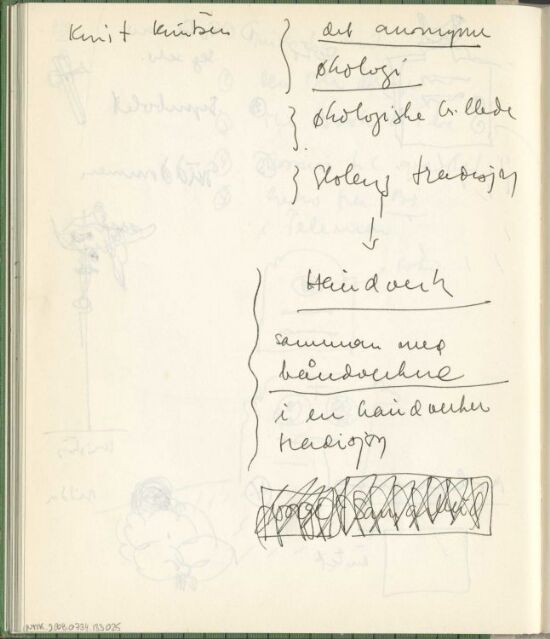 Knut Knutsen
det anonyme
økologi
økologiske billede
skolens tradisjon
Håndverk
sammen med
håndverkene
i en håndverker
tradisjon
NMK.2008.0734.133.025